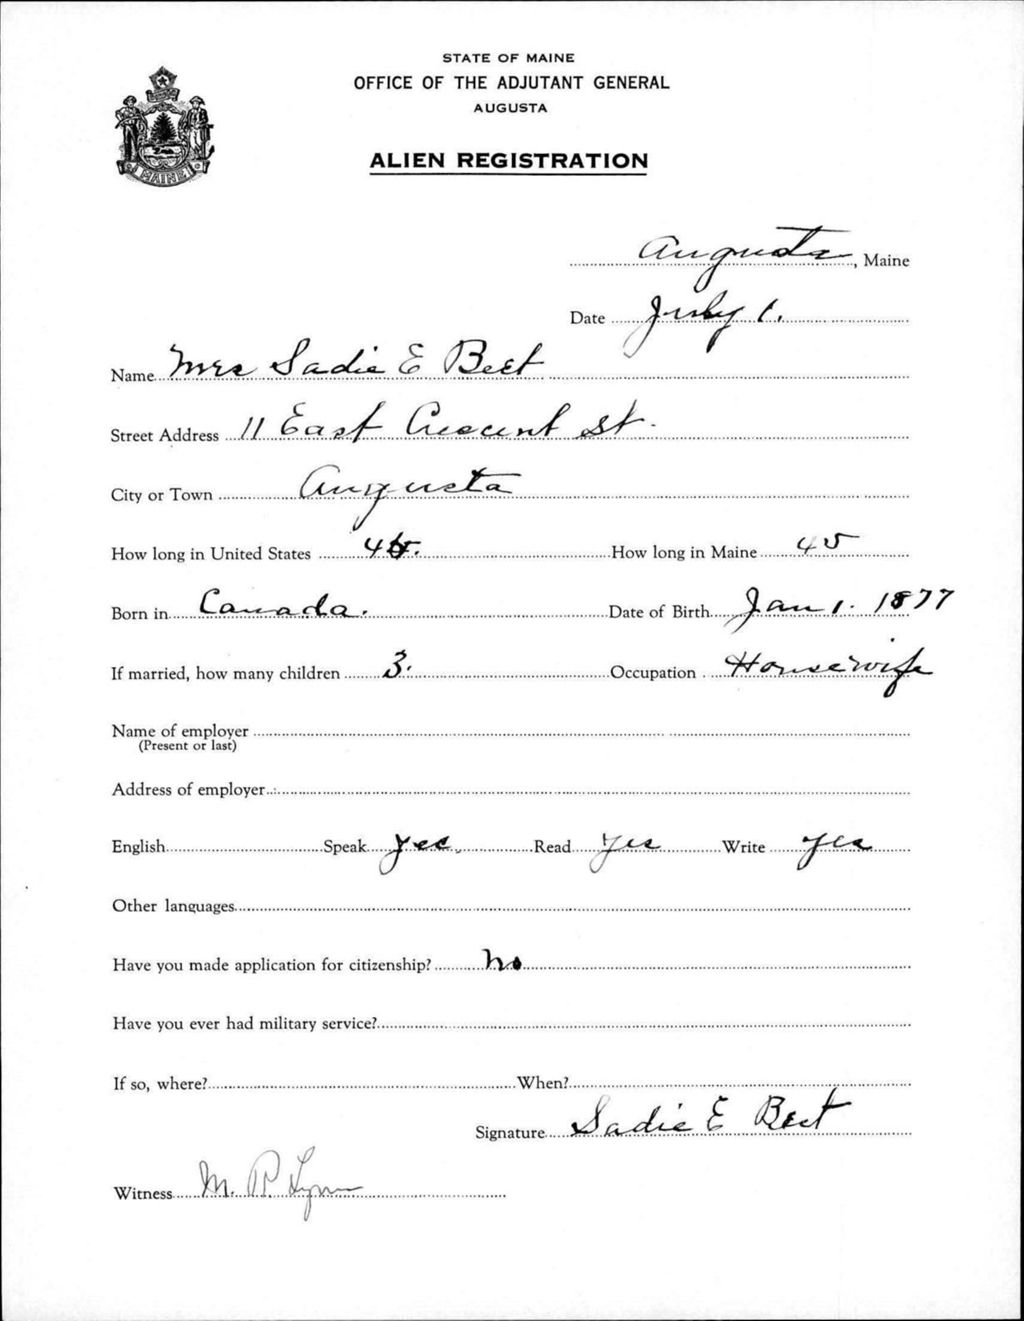 STATE OF MAINE
OFFICE OF THE ADJUTANT GENERAL
AUGUSTA
ALIEN REGISTRATION
MAINE
Augusta, Maine
Date July 1.
Name Mrs Sadie E Best
Street Address 11 East Crescent St.
City or Town Augusta
How long in United States 45. How long in Maine 45
Born in Canada. Date of Birth Jan 1. 1877
If married, how many children 3. Occupation Housewife
Name of employer
(Present or last)
Address of employer
English Speak yes. Read Yes Write yes
Other languages
Have you made application for citizenship? No
Have you ever had military service?
If so, where? When?
Signature Sadie E Best
Witness M. P. Lynn